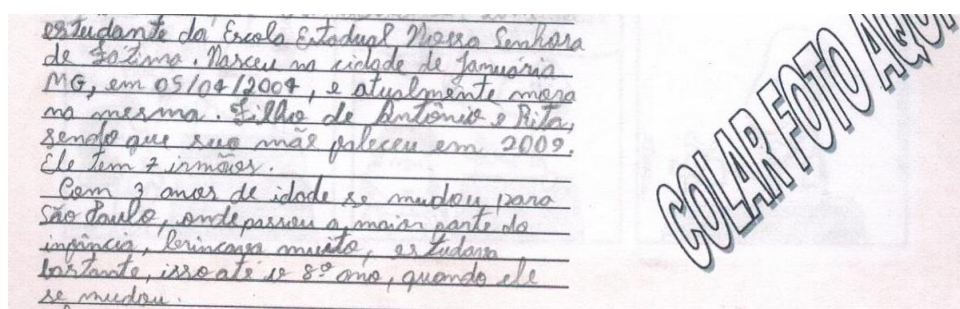 estudante da Escola Estadual Nossa Senhora
de Fátima. Nasceu na cidade de Januária
MG, em 05/04/2004, e atualmente mora
na mesma. Filho de Antônio e Rita,
sendo que sua mãe faleceu em 2009.
Ele tem 7 irmãos.
Com 3 anos de idade se mudou para
São Paulo, onde passou a maior parte da
infância, brincava muito, estudava
bastante, isso até o 8º ano, quando ele
se mudou.
COLAR FOTO AQUI